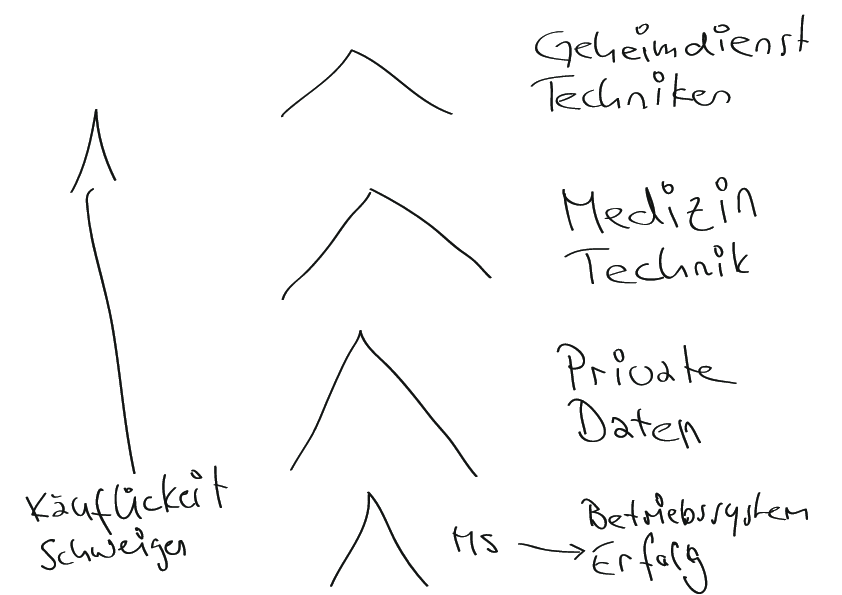 Geheimdienst
Techniken
Medizin
Technik
Private
Daten
Käuflickeit
Schweigen
MS
Betriebssystem
Erfolg